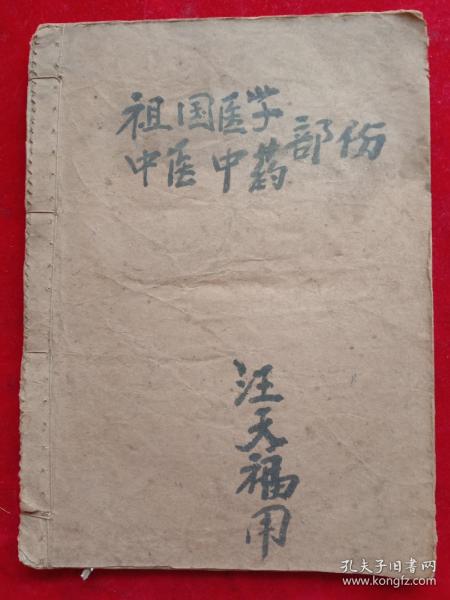 祖国医学
中医中药部份
汪天福用
孔夫子旧书网
www.kongfz.com